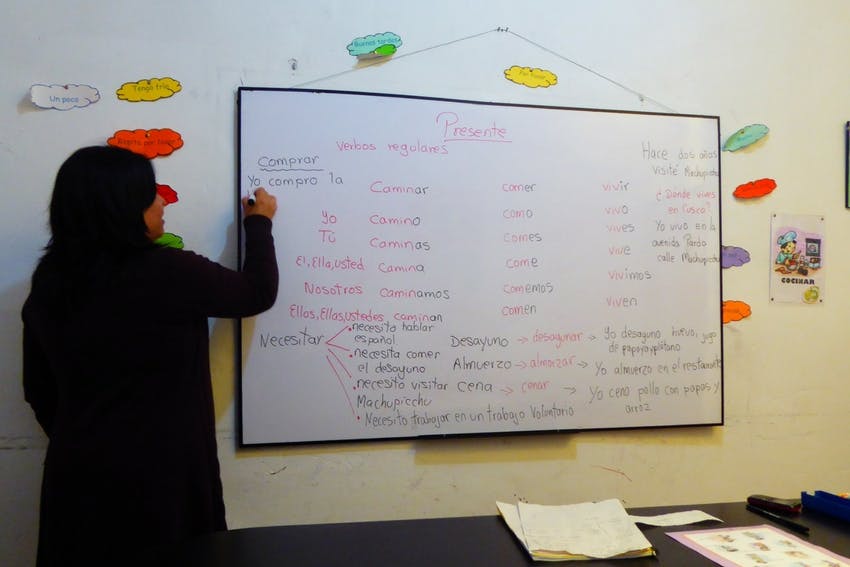 Buenas tardes
Por favor
Tengo frío
Un poco
Repita por favor
Presente
verbos regulares
Comprar
Yo compro la
Hace dos años
visité Machupicchu
Caminar comer vivir
¿Donde vives
en Cusco?
Yo camino como vivo
Tú caminas comes vives
Yo vivo en la
avenida Pardo
calle Machupicchu
El, Ella, usted camina come vive
Nosotros caminamos comemos vivimos
Ellos, Ellas, ustedes caminan comen viven
Necesitar
• necesito hablar
español
• necesita comer
el desayuno
• necesito visitar
Machupicchu
• Necesito trabajar en un trabajo Voluntario
Desayuno → desayunar → Yo desayuno huevo, jugo
de papaya y plátano
Almuerzo → almorzar → Yo almuerzo en el restaurante
Cena → cenar → Yo ceno pollo con papas y
arroz
COCINAR